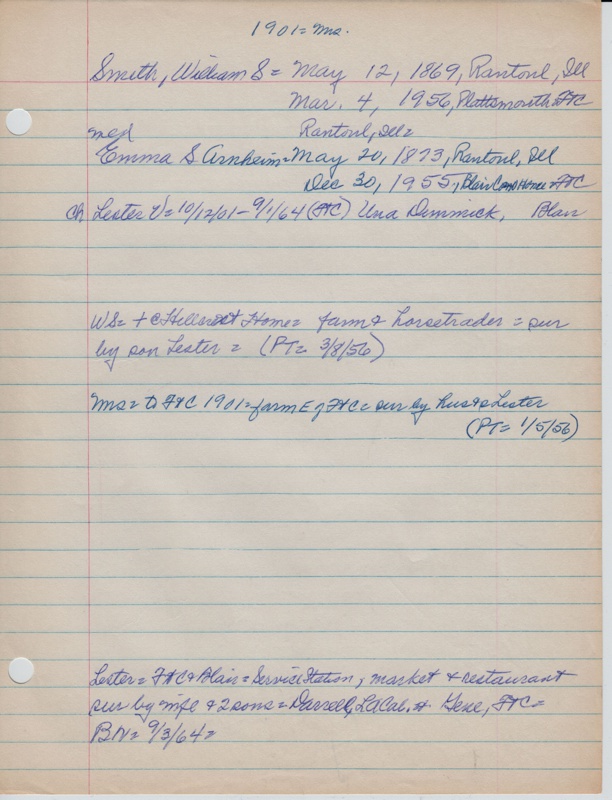 1901 = Mrs.
Smith, William S = May 12, 1869, Rantoul, Ill
Mar. 4, 1956, Plattsmouth FtC
med Rantoul, Ill =
Emma S Arnheim = May 20, 1873, Rantoul, Ill
Dec 30, 1955, Blair Home = FtC
Ch Lester V = 10/12/01 - 9/1/64 (FtC) Una Dimmick, Blair
WS = + Hillcrest Home = farm & horsetrader = sur
by son Lester = (PT = 3/8/56)
Mrs = to FtC 1901 = farm E of FtC = sur by hus & Lester
(PT = 1/5/56)
Lester = FtC & Blair = Service Station, market & restaurant
sur by wife & 2 sons = Darrell, LA Cal. & Gene, FtC =
BN = 9/3/64 =